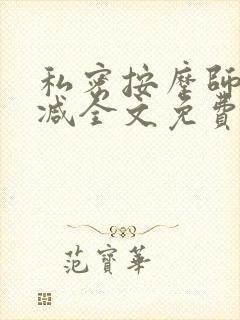 私密按摩師
减全文免費
范寶華